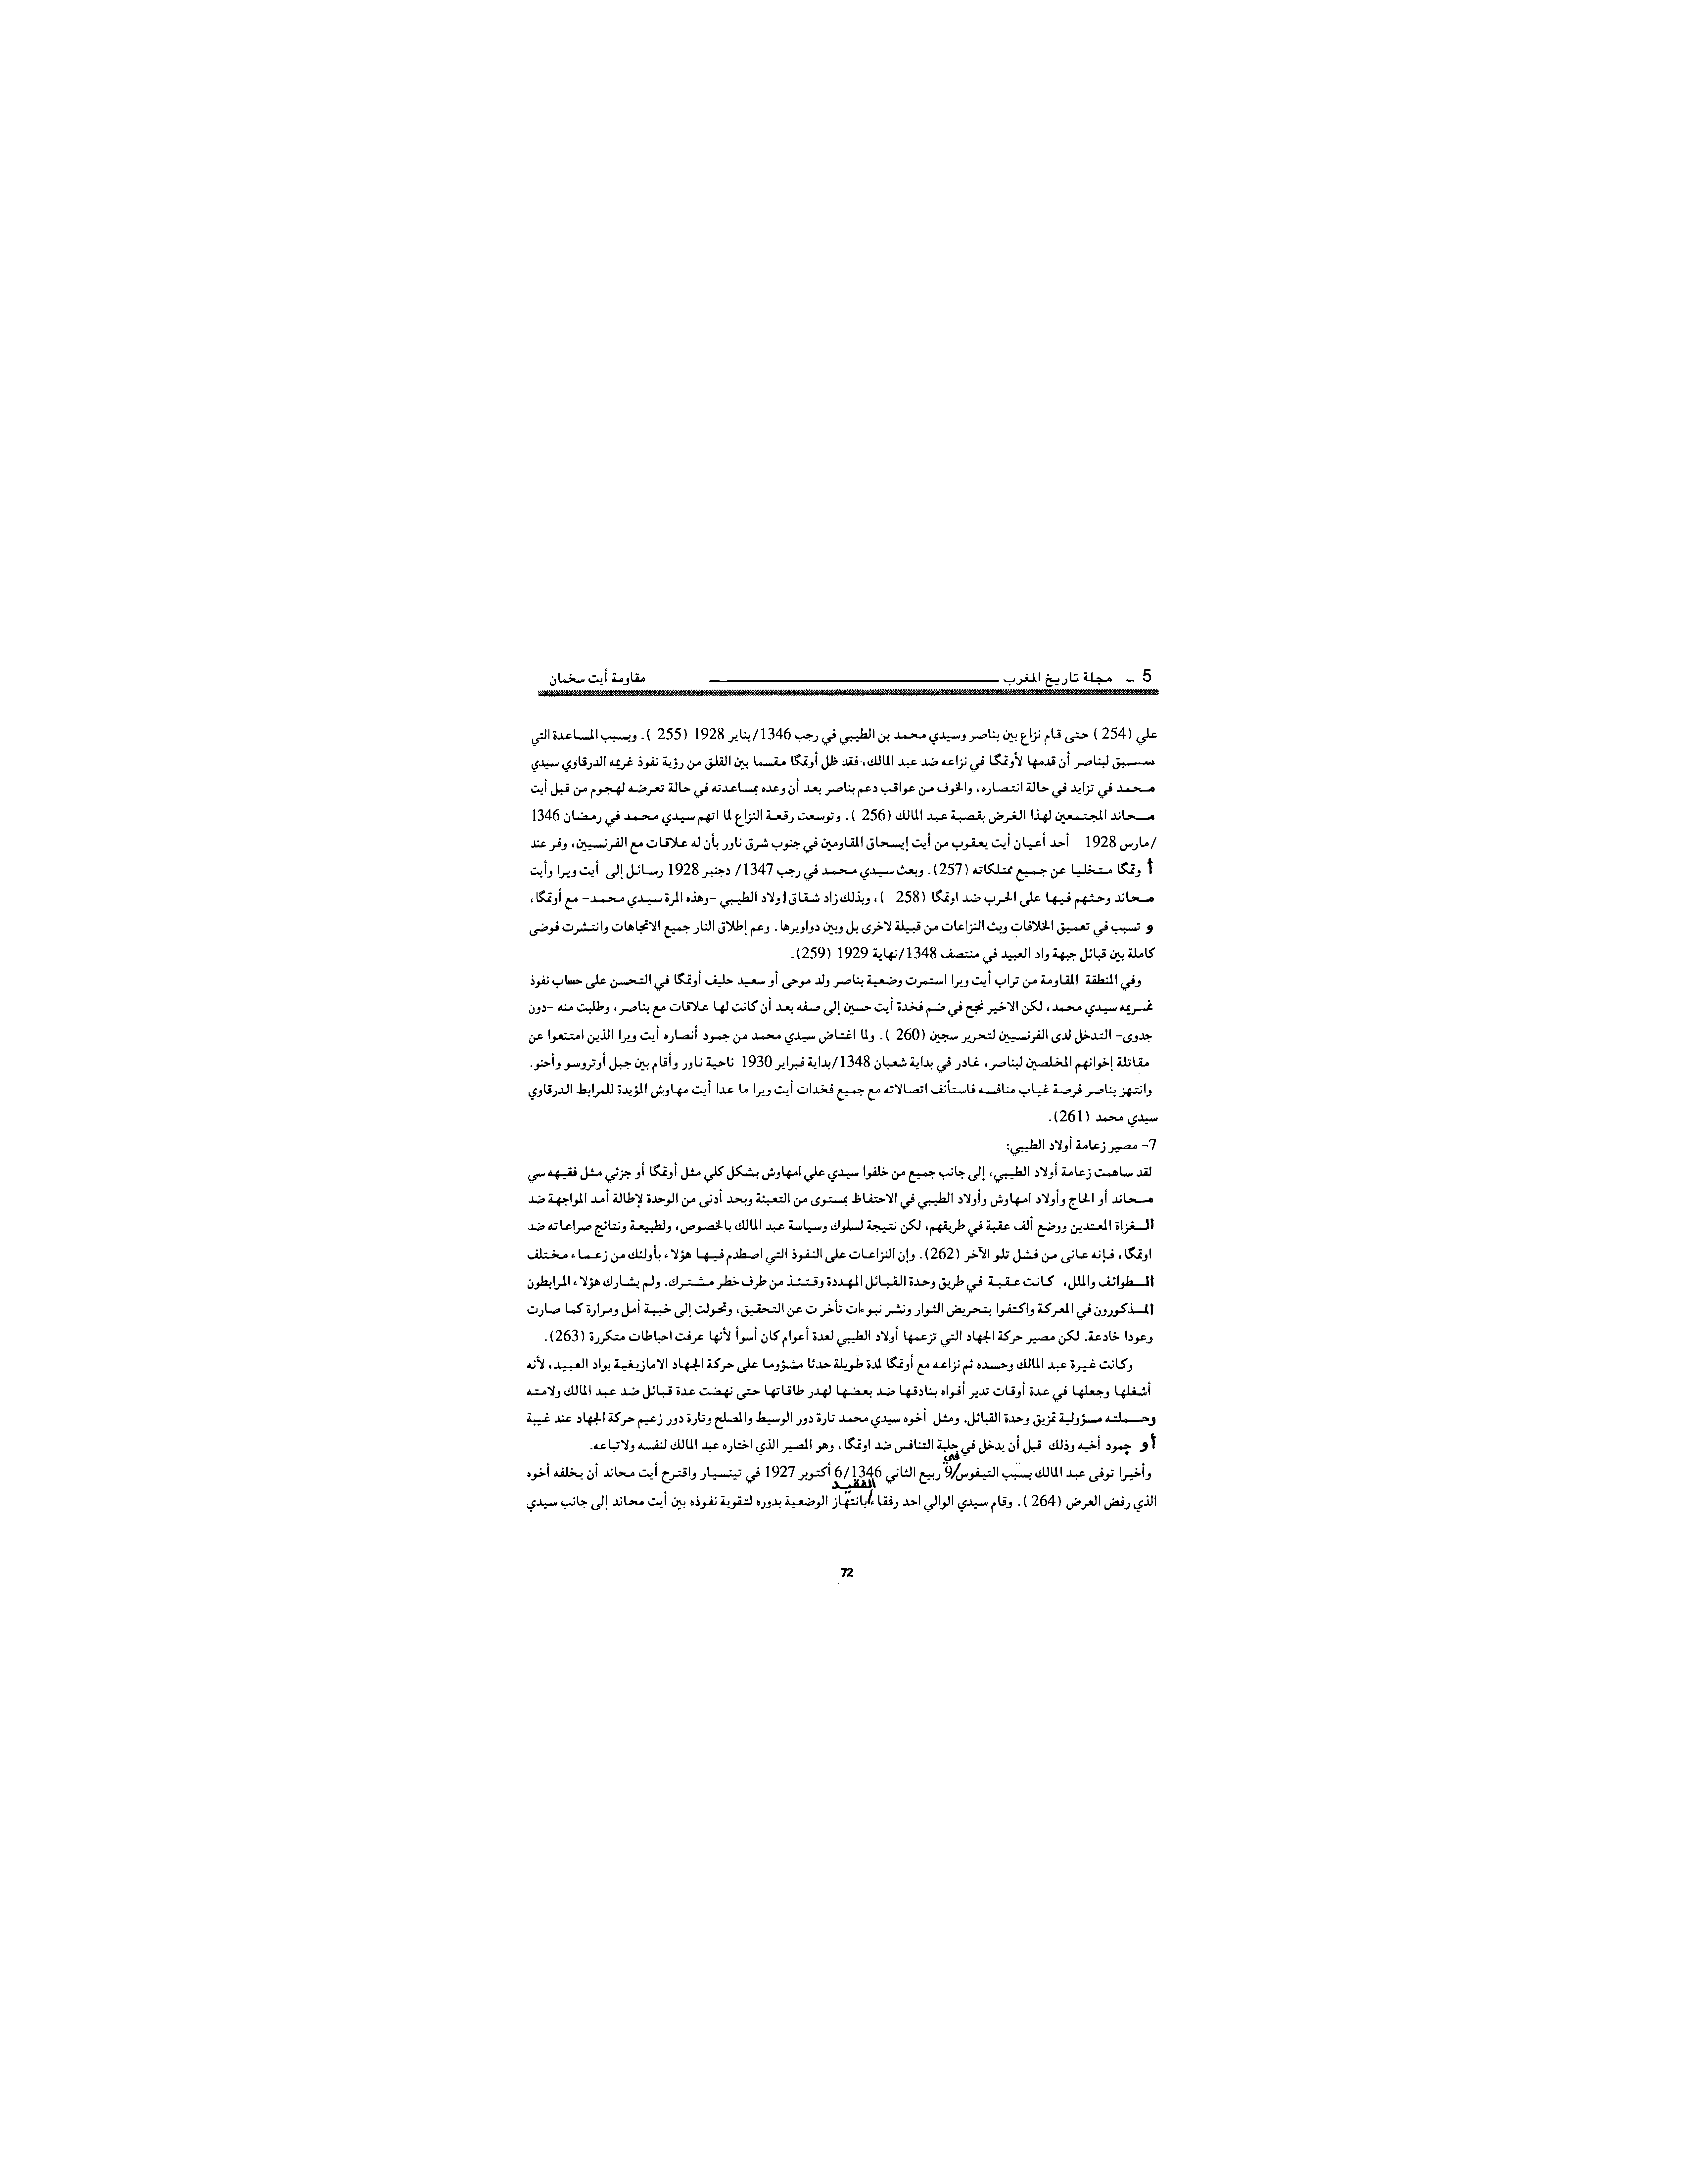 5 ــ مجلة تاريخ المغرب ــــــــــــــــــــــــ مقاومة أيت سخمان
علي (254 ) حتى قام نزاع بين بناصر وسيدي محمد بن الطيبي في رجب 1346/يناير 1928 (255 ). وبسبب المساعدة التي
سبق لبناصر أن قدمها لأوتمگا في نزاعه ضد عبد المالك، فقد ظل أوتمگا مقسما بين القلق من رؤية نفوذ غريمه الدرقاوي سيدي
محمد في تزايد في حالة انتصاره، والخوف من عواقب دعم بناصر بعد أن وعده بمساعدته في حالة تعرضه لهجوم من قبل أيت
محاند المجتمعين لهذا الغرض بقصبة عبد المالك (256 ). وتوسعت رقعة النزاع لما اتهم سيدي محمد في رمضان 1346
/مارس 1928 أحد أعيان أيت يعقوب من أيت إيسحاق المقاومين في جنوب شرق ناور بأن له علاقات مع الفرنسيين، وفر عند
أوتمگا متخليا عن جميع ممتلكاته (257). وبعث سيدي محمد في رجب 1347/ دجنبر 1928 رسائل إلى أيت ويرا وأيت
محاند وحثهم فيها على الحرب ضد اوتمگا (258 )، وبذلك زاد شقاق اولاد الطيبي -وهذه المرة سيدي محمد- مع أوتمگا،
و تسبب في تعميق الخلافات وبث النزاعات من قبيلة لاخرى بل وبين دواويرها. وعم إطلاق النار جميع الاتجاهات وانتشرت فوضى
كاملة بين قبائل جبهة واد العبيد في منتصف 1348/نهاية 1929 (259).
وفي المنطقة المقاومة من تراب أيت ويرا استمرت وضعية بناصر ولد موحى أو سعيد حليف أوتمگا في التحسن على حساب نفوذ
غريمه سيدي محمد، لكن الاخير نجح في ضم فخدة أيت حسين إلى صفه بعد أن كانت لها علاقات مع بناصر، وطلبت منه -دون
جدوى- التدخل لدى الفرنسيين لتحرير سجين (260 ). ولما اغتاض سيدي محمد من جمود أنصاره أيت ويرا الذين امتنعوا عن
مقاتلة إخوانهم المخلصين لبناصر، غادر في بداية شعبان 1348/بداية فبراير 1930 ناحية ناور وأقام بين جبل أوتروسو وأحنو.
وانتهز بناصر فرصة غياب منافسه فاستأنف اتصالاته مع جميع فخدات أيت ويرا ما عدا أيت مهاوش المؤيدة للمرابط الدرقاوي
سيدي محمد (261).
7- مصير زعامة أولاد الطيبي:
لقد ساهمت زعامة أولاد الطيبي، إلى جانب جميع من خلفوا سيدي علي امهاوش بشكل كلي مثل أوتمگا أو جزئي مثل فقيهه سي
محاند أو الحاج وأولاد امهاوش وأولاد الطيبي في الاحتفاظ بمستوى من التعبئة وبحد أدنى من الوحدة لإطالة أمد المواجهة ضد
الغزاة المعتدين ووضع ألف عقبة في طريقهم، لكن نتيجة لسلوك وسياسة عبد المالك بالخصوص، ولطبيعة ونتائج صراعاته ضد
اوتمگا، فإنه عانى من فشل تلو الآخر (262). وإن النزاعات على النفوذ التي اصطدم فيها هؤلاء بأولئك من زعماء مختلف
الطوائف والملل، كانت عقبة في طريق وحدة القبائل المهددة وقتئذ من طرف خطر مشترك. ولم يشارك هؤلاء المرابطون
المذكورون في المعركة واكتفوا بتحريض الثوار ونشر نبوءات تأخرت عن التحقيق، وتحولت إلى خيبة أمل ومرارة كما صارت
وعودا خادعة. لكن مصير حركة الجهاد التي تزعمها أولاد الطيبي لعدة أعوام كان أسوأ لأنها عرفت احباطات متكررة (263).
وكانت غيرة عبد المالك وحسده ثم نزاعه مع أوتمگا لمدة طويلة حدثا مشؤوما على حركة الجهاد الامازيغية بواد العبيد، لأنه
أشغلها وجعلها في عدة أوقات تدير أفواه بنادقها ضد بعضها لهدر طاقاتها حتى نهضت عدة قبائل ضد عبد المالك ولامته
وحملته مسؤولية تمزيق وحدة القبائل. ومثل أخوه سيدي محمد تارة دور الوسيط والمصلح وتارة دور زعيم حركة الجهاد عند غيبة
أو جمود أخيه وذلك قبل أن يدخل في حلبة التنافس ضد اوتمگا، وهو المصير الذي اختاره عبد المالك لنفسه ولاتباعه.
وأخيرا توفى عبد المالك بسبب التيفوس/في 9 ربيع الثاني 6/1346 أكتوبر 1927 في تينسيار واقترح أيت محاند أن يخلفه أخوه
الذي رفض العرض (264 ). وقام سيدي الوالي احد رفقاء/الفقيد بانتهاز الوضعية بدوره لتقوية نفوذه بين أيت محاند إلى جانب سيدي
72